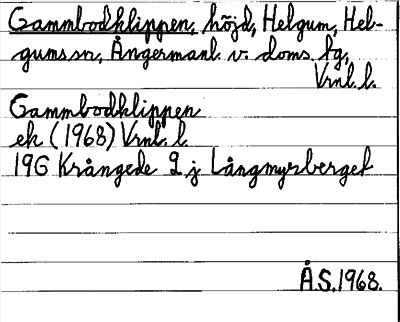 Gammbodklippen, höjd, Helgum, Hel-
gums sn, Ångermanl. v. doms. fg,
Vrnl. l.
Gammbodklippen
ek (1968) Vrnl. l.
19G Krångede 2 j Långmyrberget
Å.S. 1968.